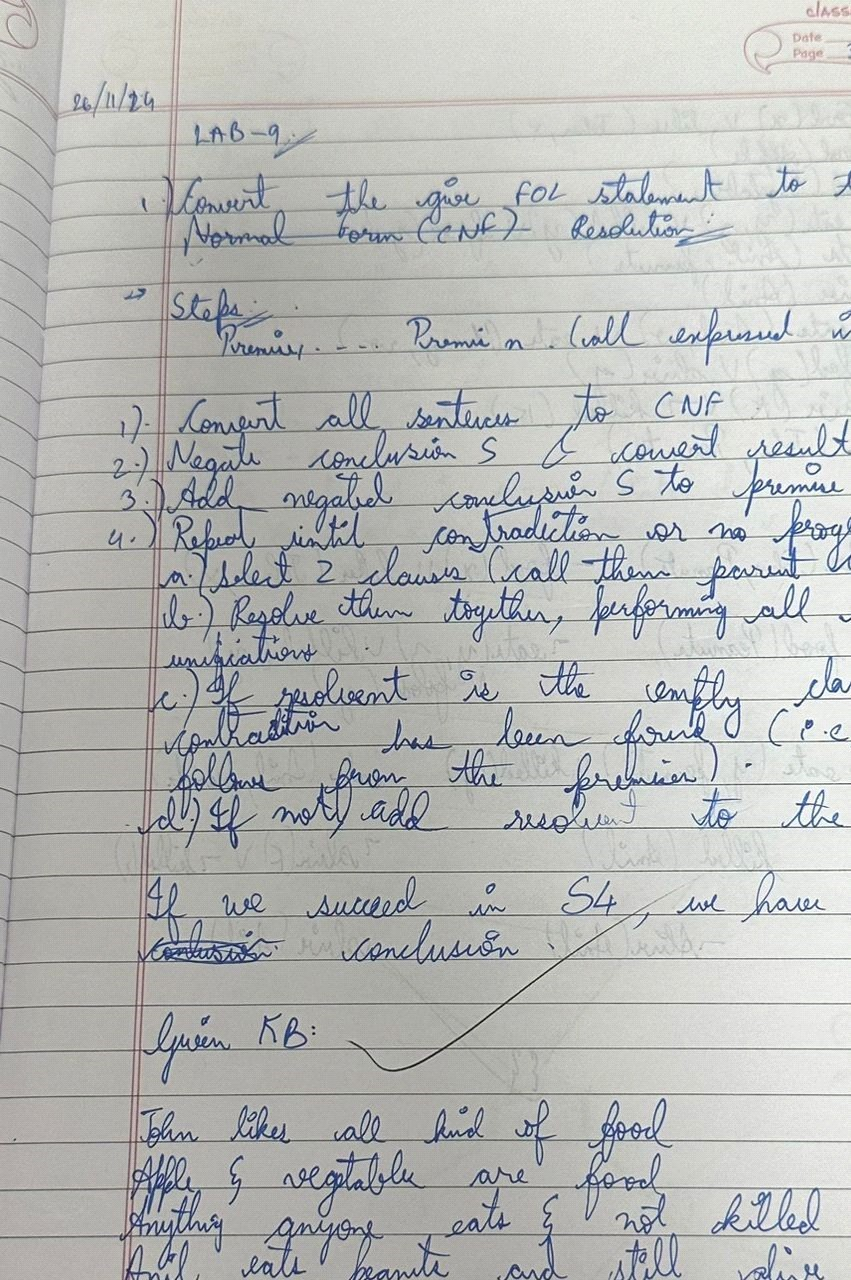 class
Date
Page
26/11/24
LAB-9
1.) Convert the give FOL statement to
Normal Form (CNF) Resolution:
→ Steps:
Premise, .... Premi n. (all expressed
1). Convert all sentences to CNF
2.) Negate conclusion S & convert result
3.) Add negated conclusion S to premise
4.) Repeat until contradiction or no prog
a.) select 2 clauses (call them parent
b.) Resolve them together, performing all
unifications
c.) If resolvent is the empty cla
contradition has been found (i.e
follows from the premises).
d.) If not, add resolvent to the
If we succeed in S4, we have
conclusion.
Given KB:
John likes all kind of food
Apple & vegetable are food
Anything anyone eats & not killed
Anil eats peanuts and still alive